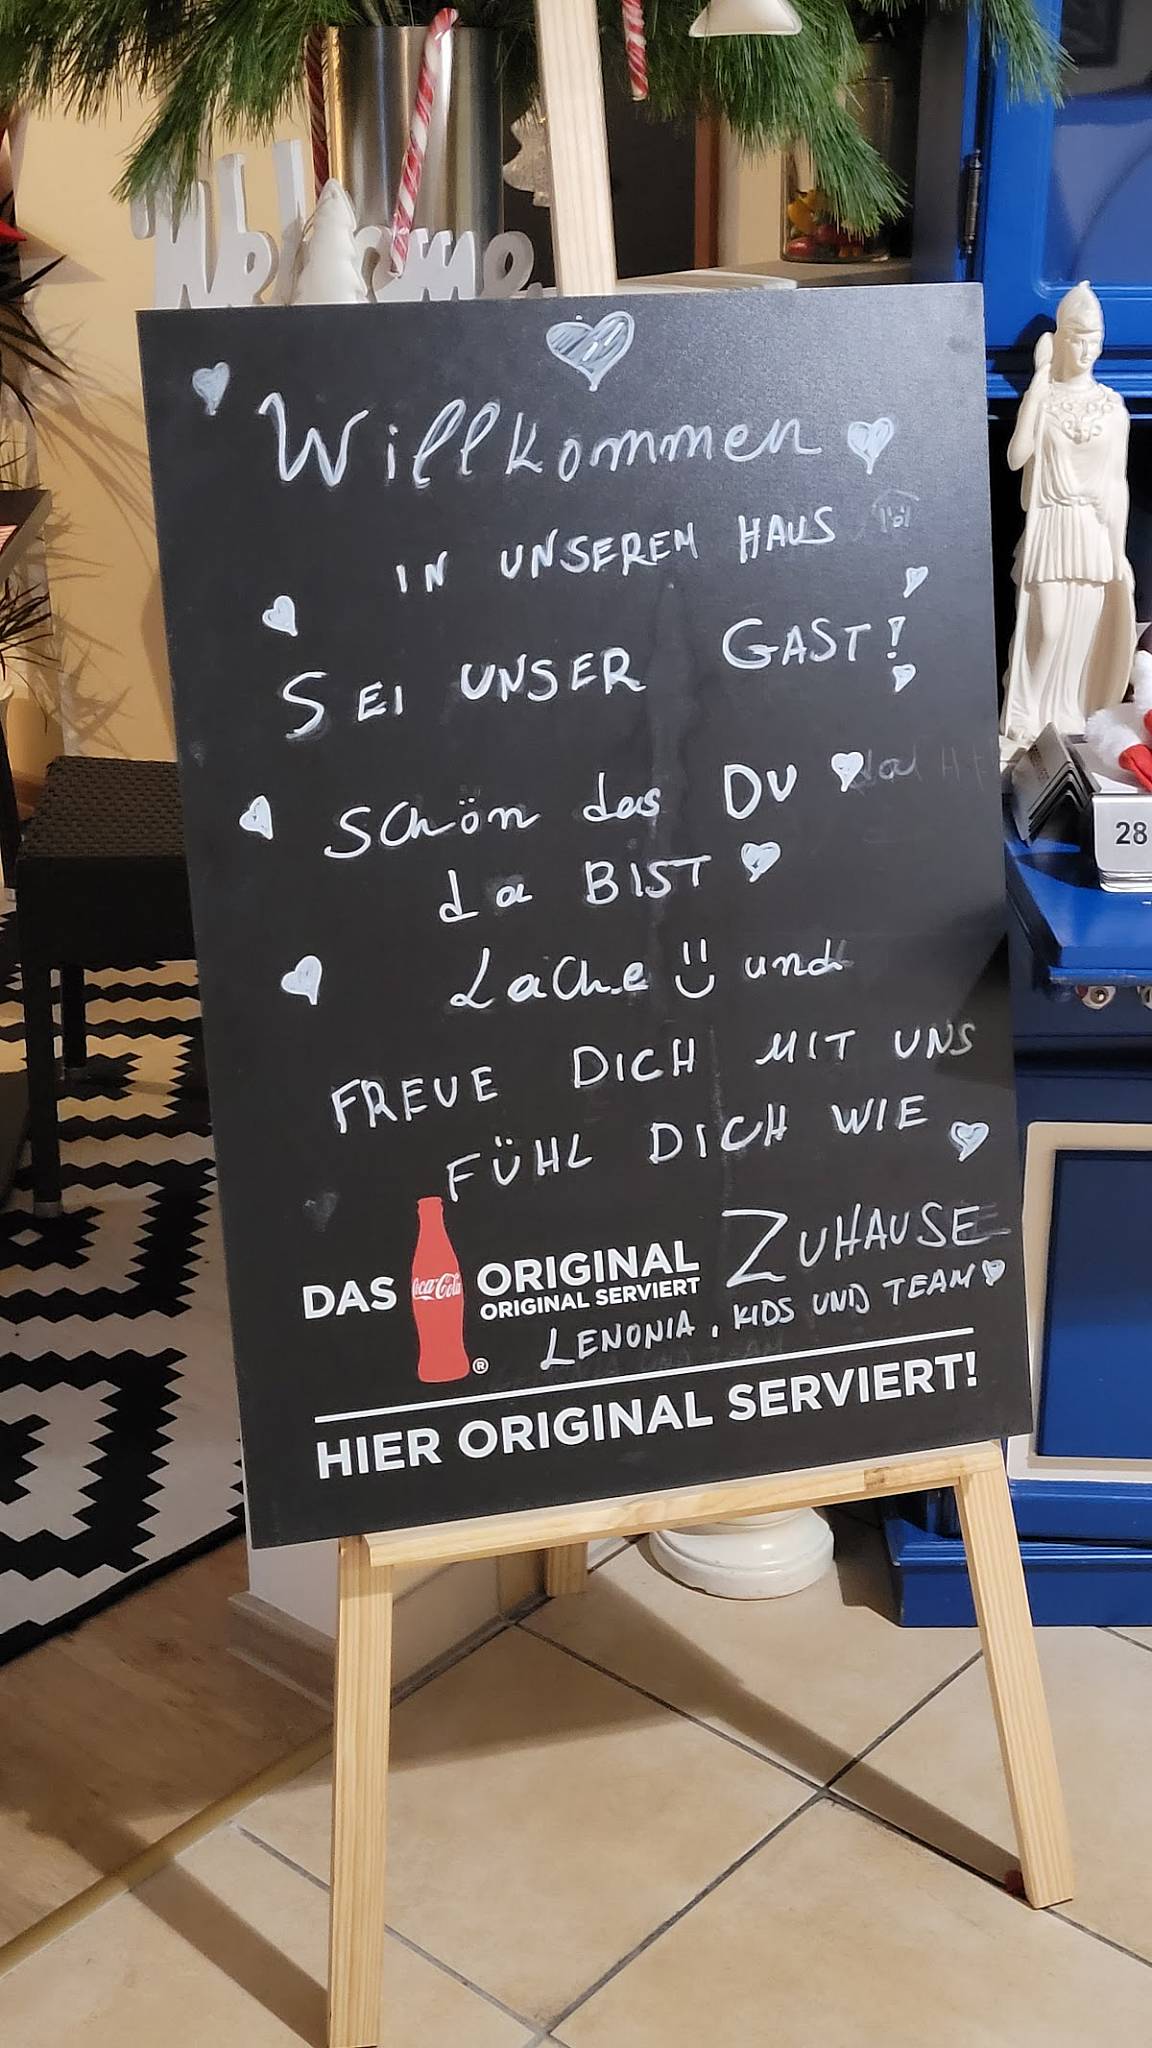 Welcome
Willkommen
IN UNSEREM HAUS
SEI UNSER GAST!
Schön das DU
da BIST
Lache und
FREUE DICH MIT UNS
FÜHL DICH WIE
ZUHAUSE
DAS Coca-Cola ® ORIGINAL
ORIGINAL SERVIERT
LENONIA, KIDS UND TEAM
HIER ORIGINAL SERVIERT!
28